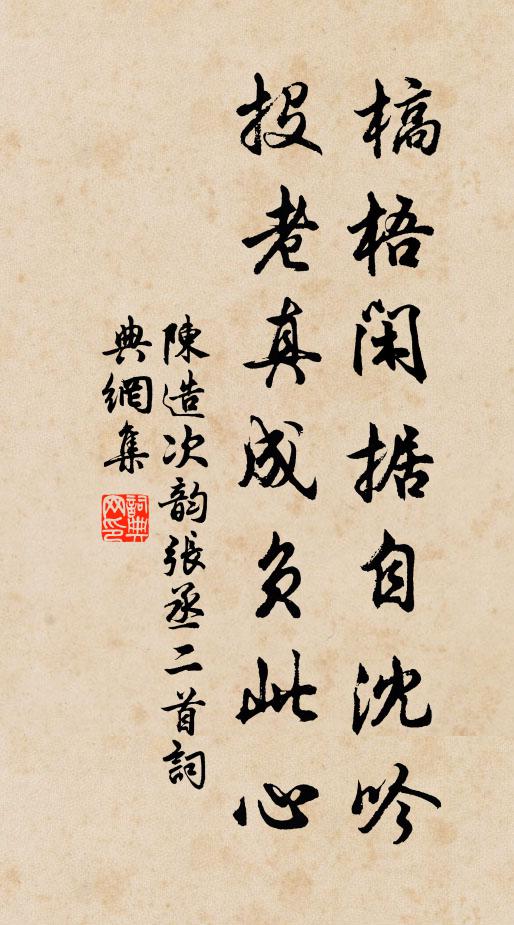 槁梧閑据自沈吟
投老真成負此心
陳造次韵張丞二首詞
典網集
詞典網印